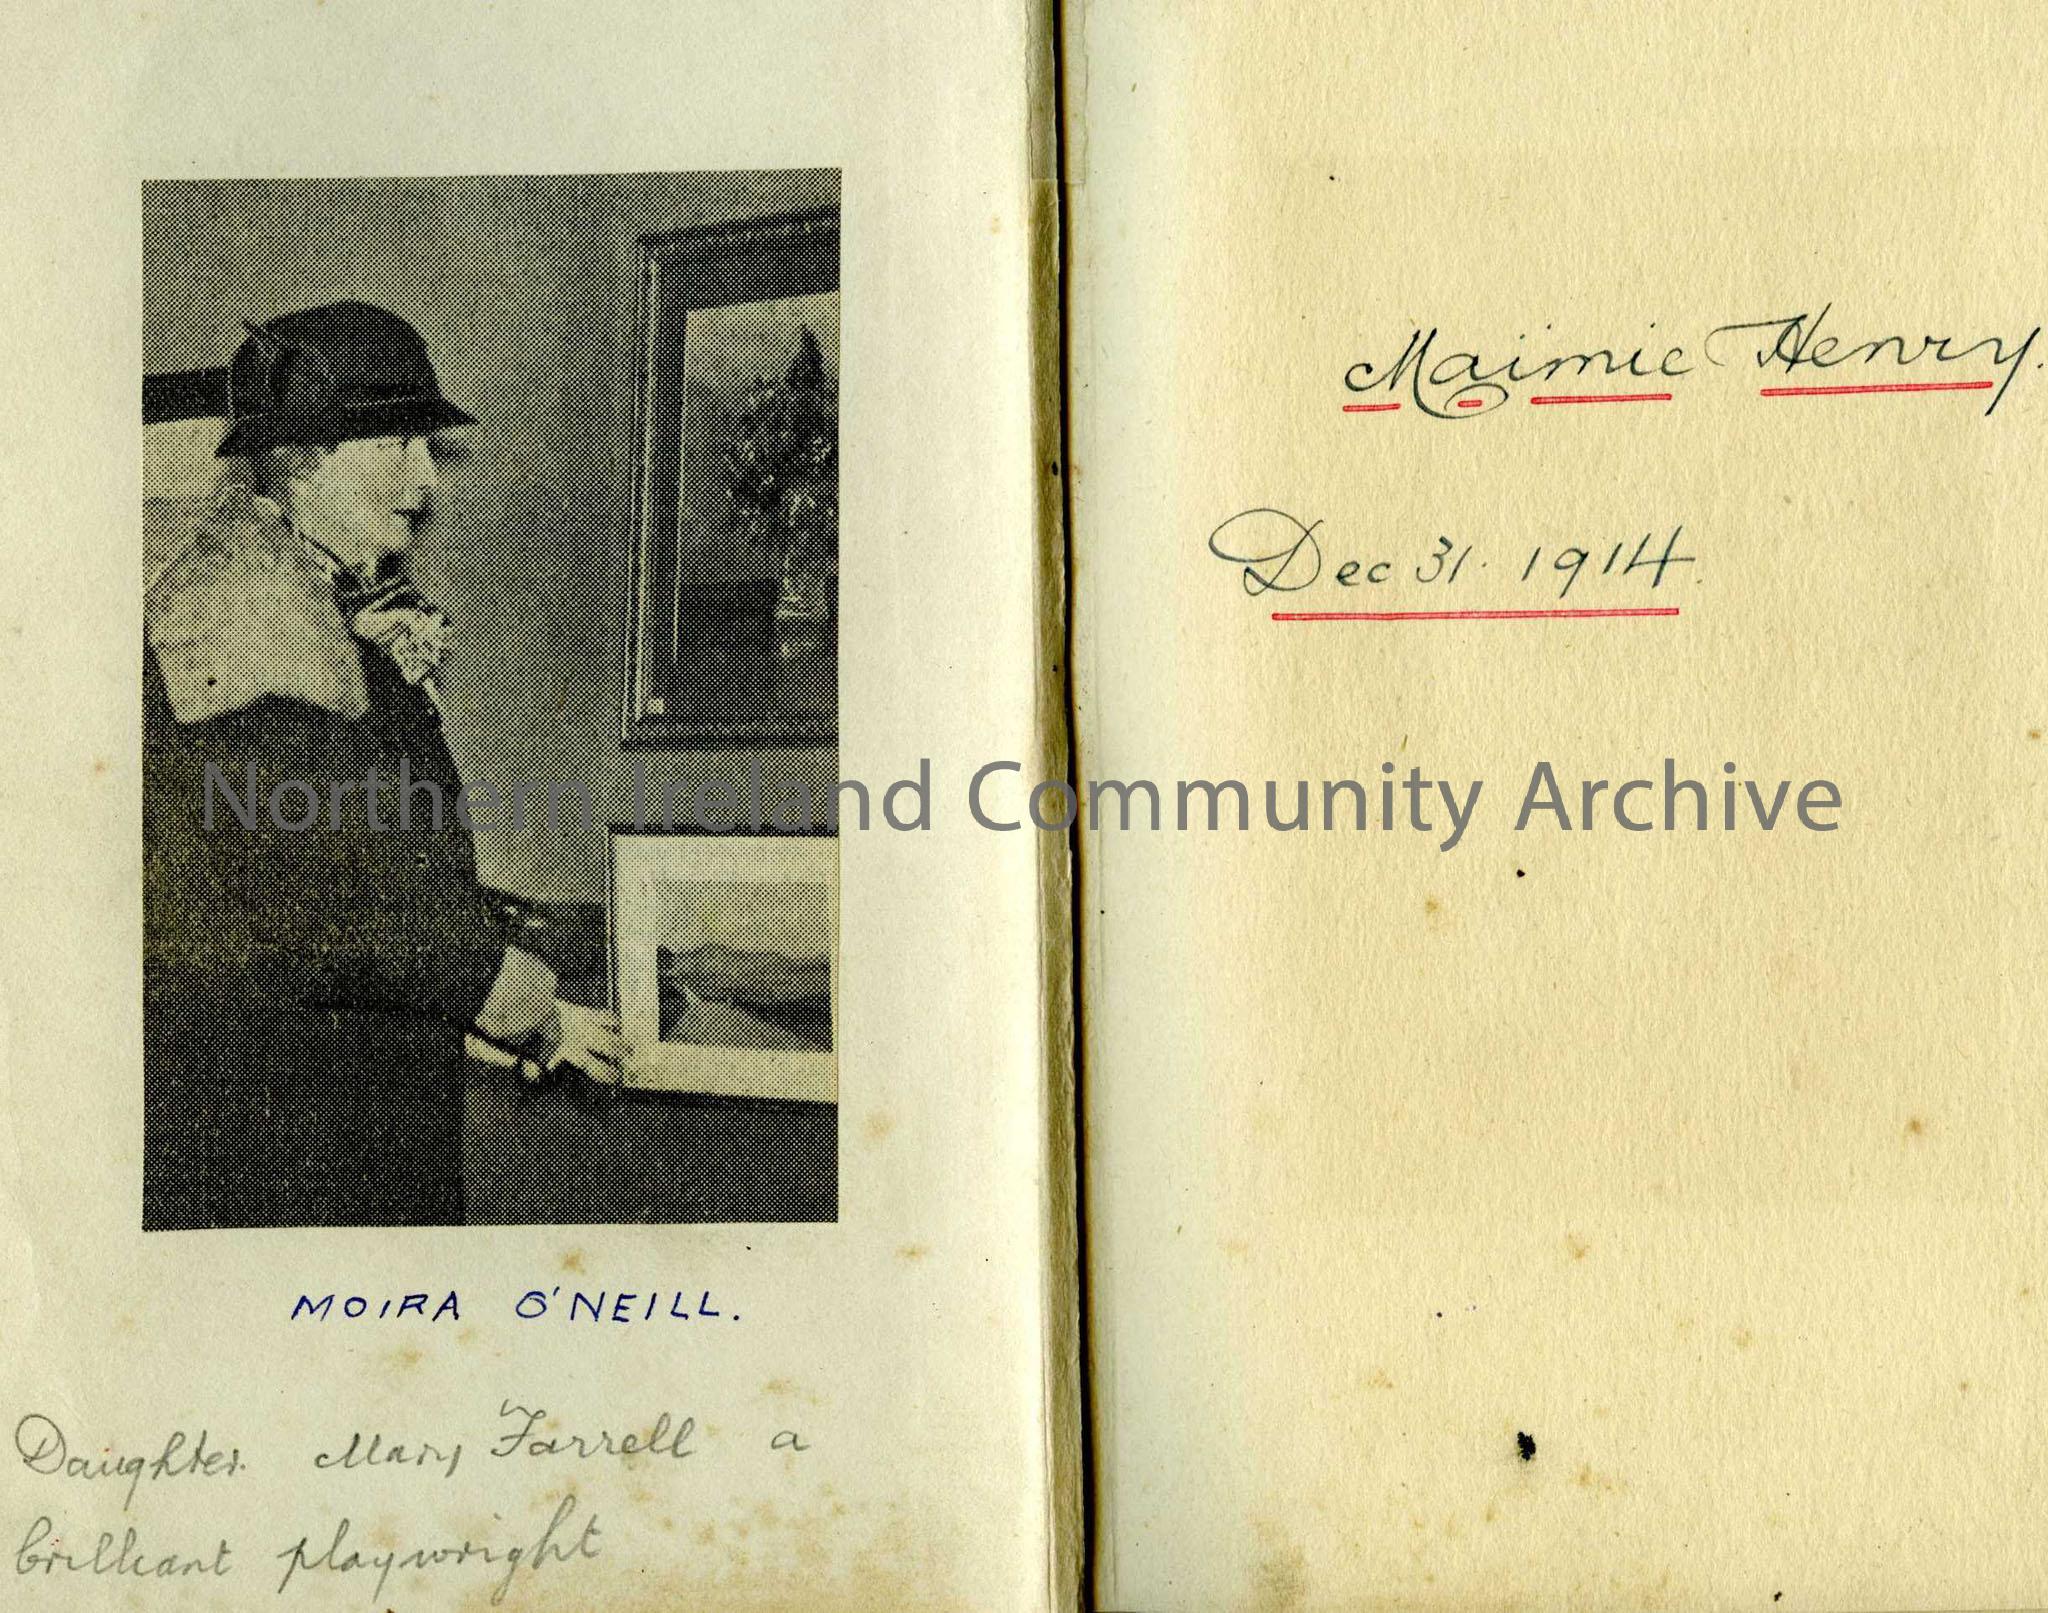 MOIRA O'NEILL.
Daughter. Mary Farrell a
brilliant playwright
Maimie Henry.
Dec 31. 1914.
Northern Ireland Community Archive